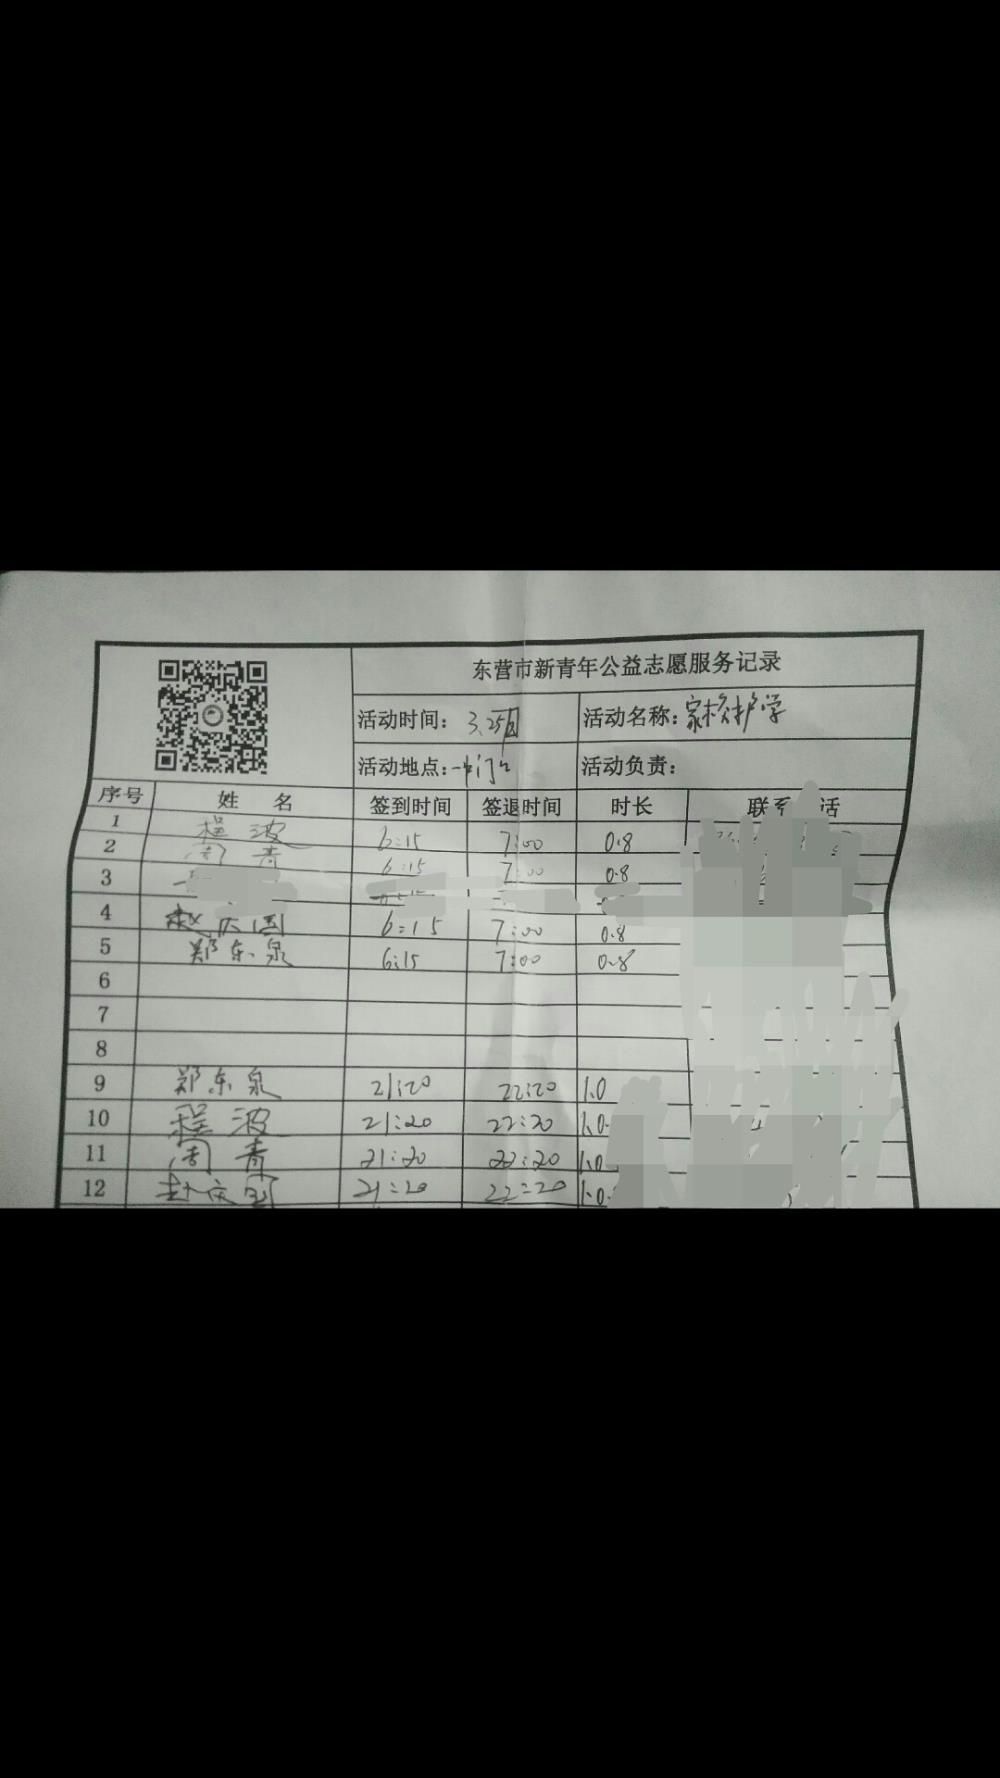 东营市新青年公益志愿服务记录
活动时间：3.25 活动名称：家校护学
活动地点：一中门口 活动负责：
序号 姓名 签到时间 签退时间 时长 联系 话
1 程波 6:15 7:00 0.8
2 周青 6:15 7:00 0.8
3
4 赵庆国 6:15 7:00 0.8
5 郑东泉 6:15 7:00 0.8
6
7
8
9 郑东泉 21:20 22:20 1.0
10 程波 21:20 22:20 1.0
11 周青 21:20 22:20 1.0
12 赵庆国 21:20 22:20 1.0